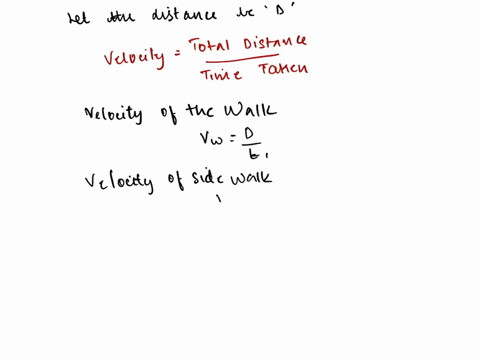 Let the distance be 'D'
Velocity = Total Distance / Time Taken
Velocity of the Walk
Vw = D / t1
Velocity of side walk